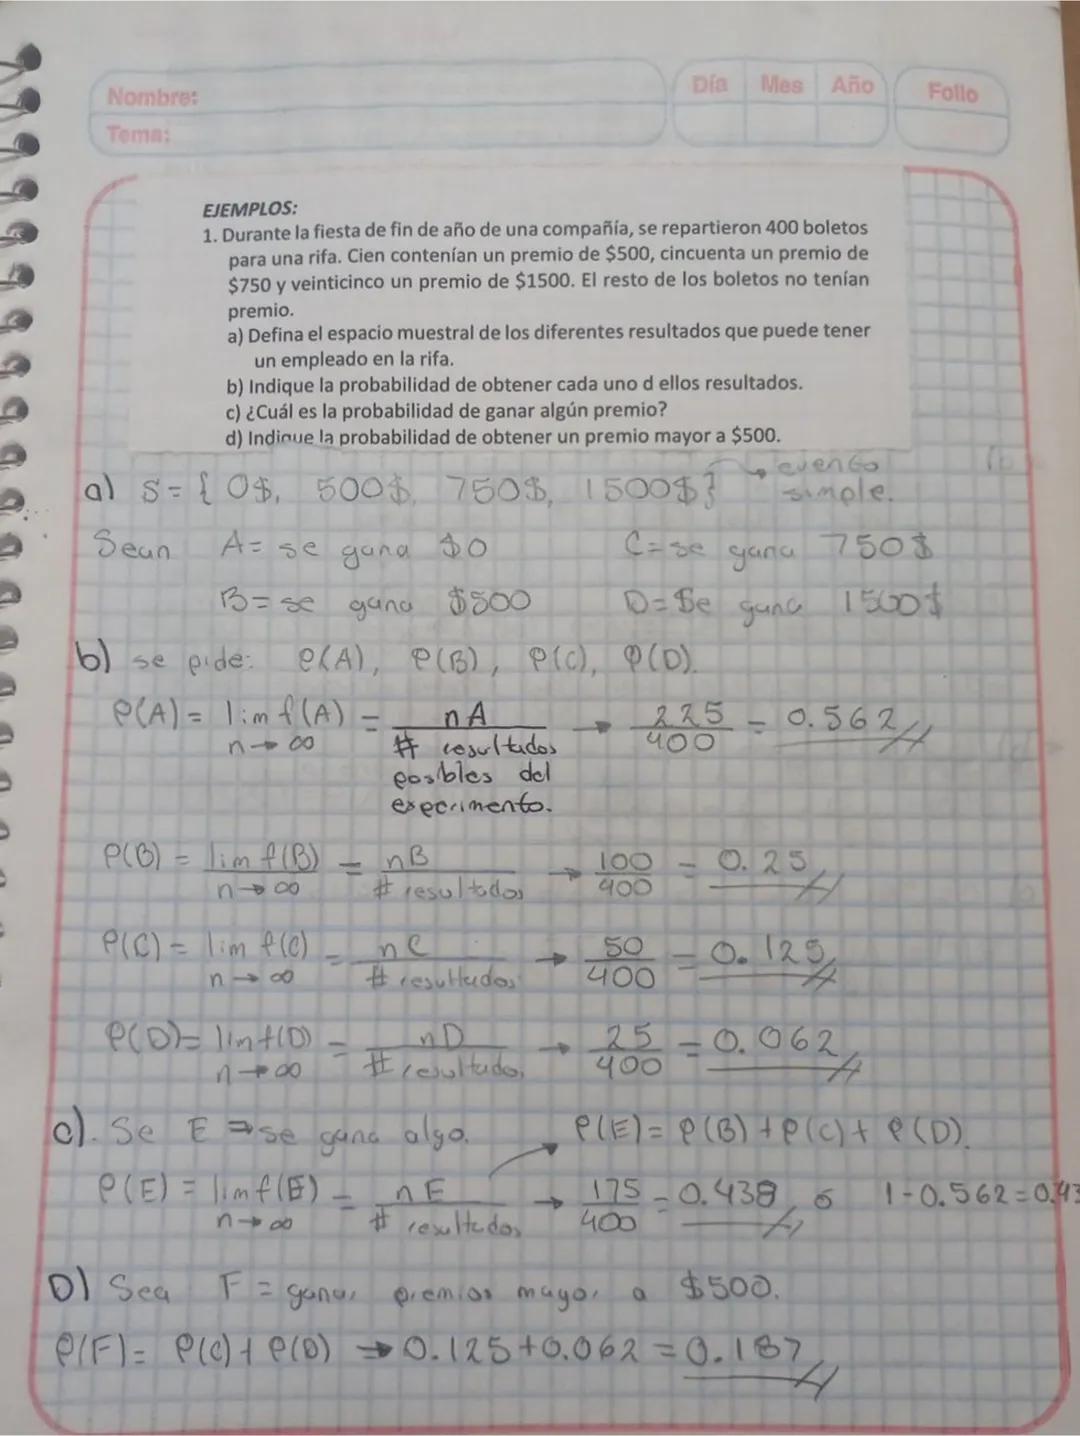 Nombre:
Tema:
Día Mes Año
Folio
EJEMPLOS:
1. Durante la fiesta de fin de año de una compañía, se repartieron 400 boletos
para una rifa. Cien contenían un premio de $500, cincuenta un premio de
$750 y veinticinco un premio de $1500. El resto de los boletos no tenían
premio.
a) Defina el espacio muestral de los diferentes resultados que puede tener
un empleado en la rifa.
b) Indique la probabilidad de obtener cada uno d ellos resultados.
c) ¿Cuál es la probabilidad de ganar algún premio?
d) Indique la probabilidad de obtener un premio mayor a $500.
a) S = { 0$, 500$, 750$, 1500$} → evento
simple.
Sean A = se gana $0 C = se gana 750$
B = se gana $500 D = Se gana 1500$
b) se pide: P(A), P(B), P(C), P(D).
P(A) = lim f(A) = nA → 225 = 0.562
n → ∞ # resultados 400
posibles del
experimento.
P(B) = lim f(B) = nB → 100 = 0.25
n → ∞ # resultados 400
P(C) = lim f(C) = nC → 50 = 0.125
n → ∞ # resultados 400
P(D) = lim f(D) = nD → 25 = 0.062
n → ∞ # resultados 400
c). Se E ⇒ se gana algo. P(E) = P(B) + P(C) + P(D).
P(E) = lim f(E) = nE → 175 = 0.438 ó 1-0.562 = 0.43
n → ∞ # resultados 400
D) Sea F = ganar premios mayor a $500.
P(F) = P(C) + P(D) → 0.125 + 0.062 = 0.187